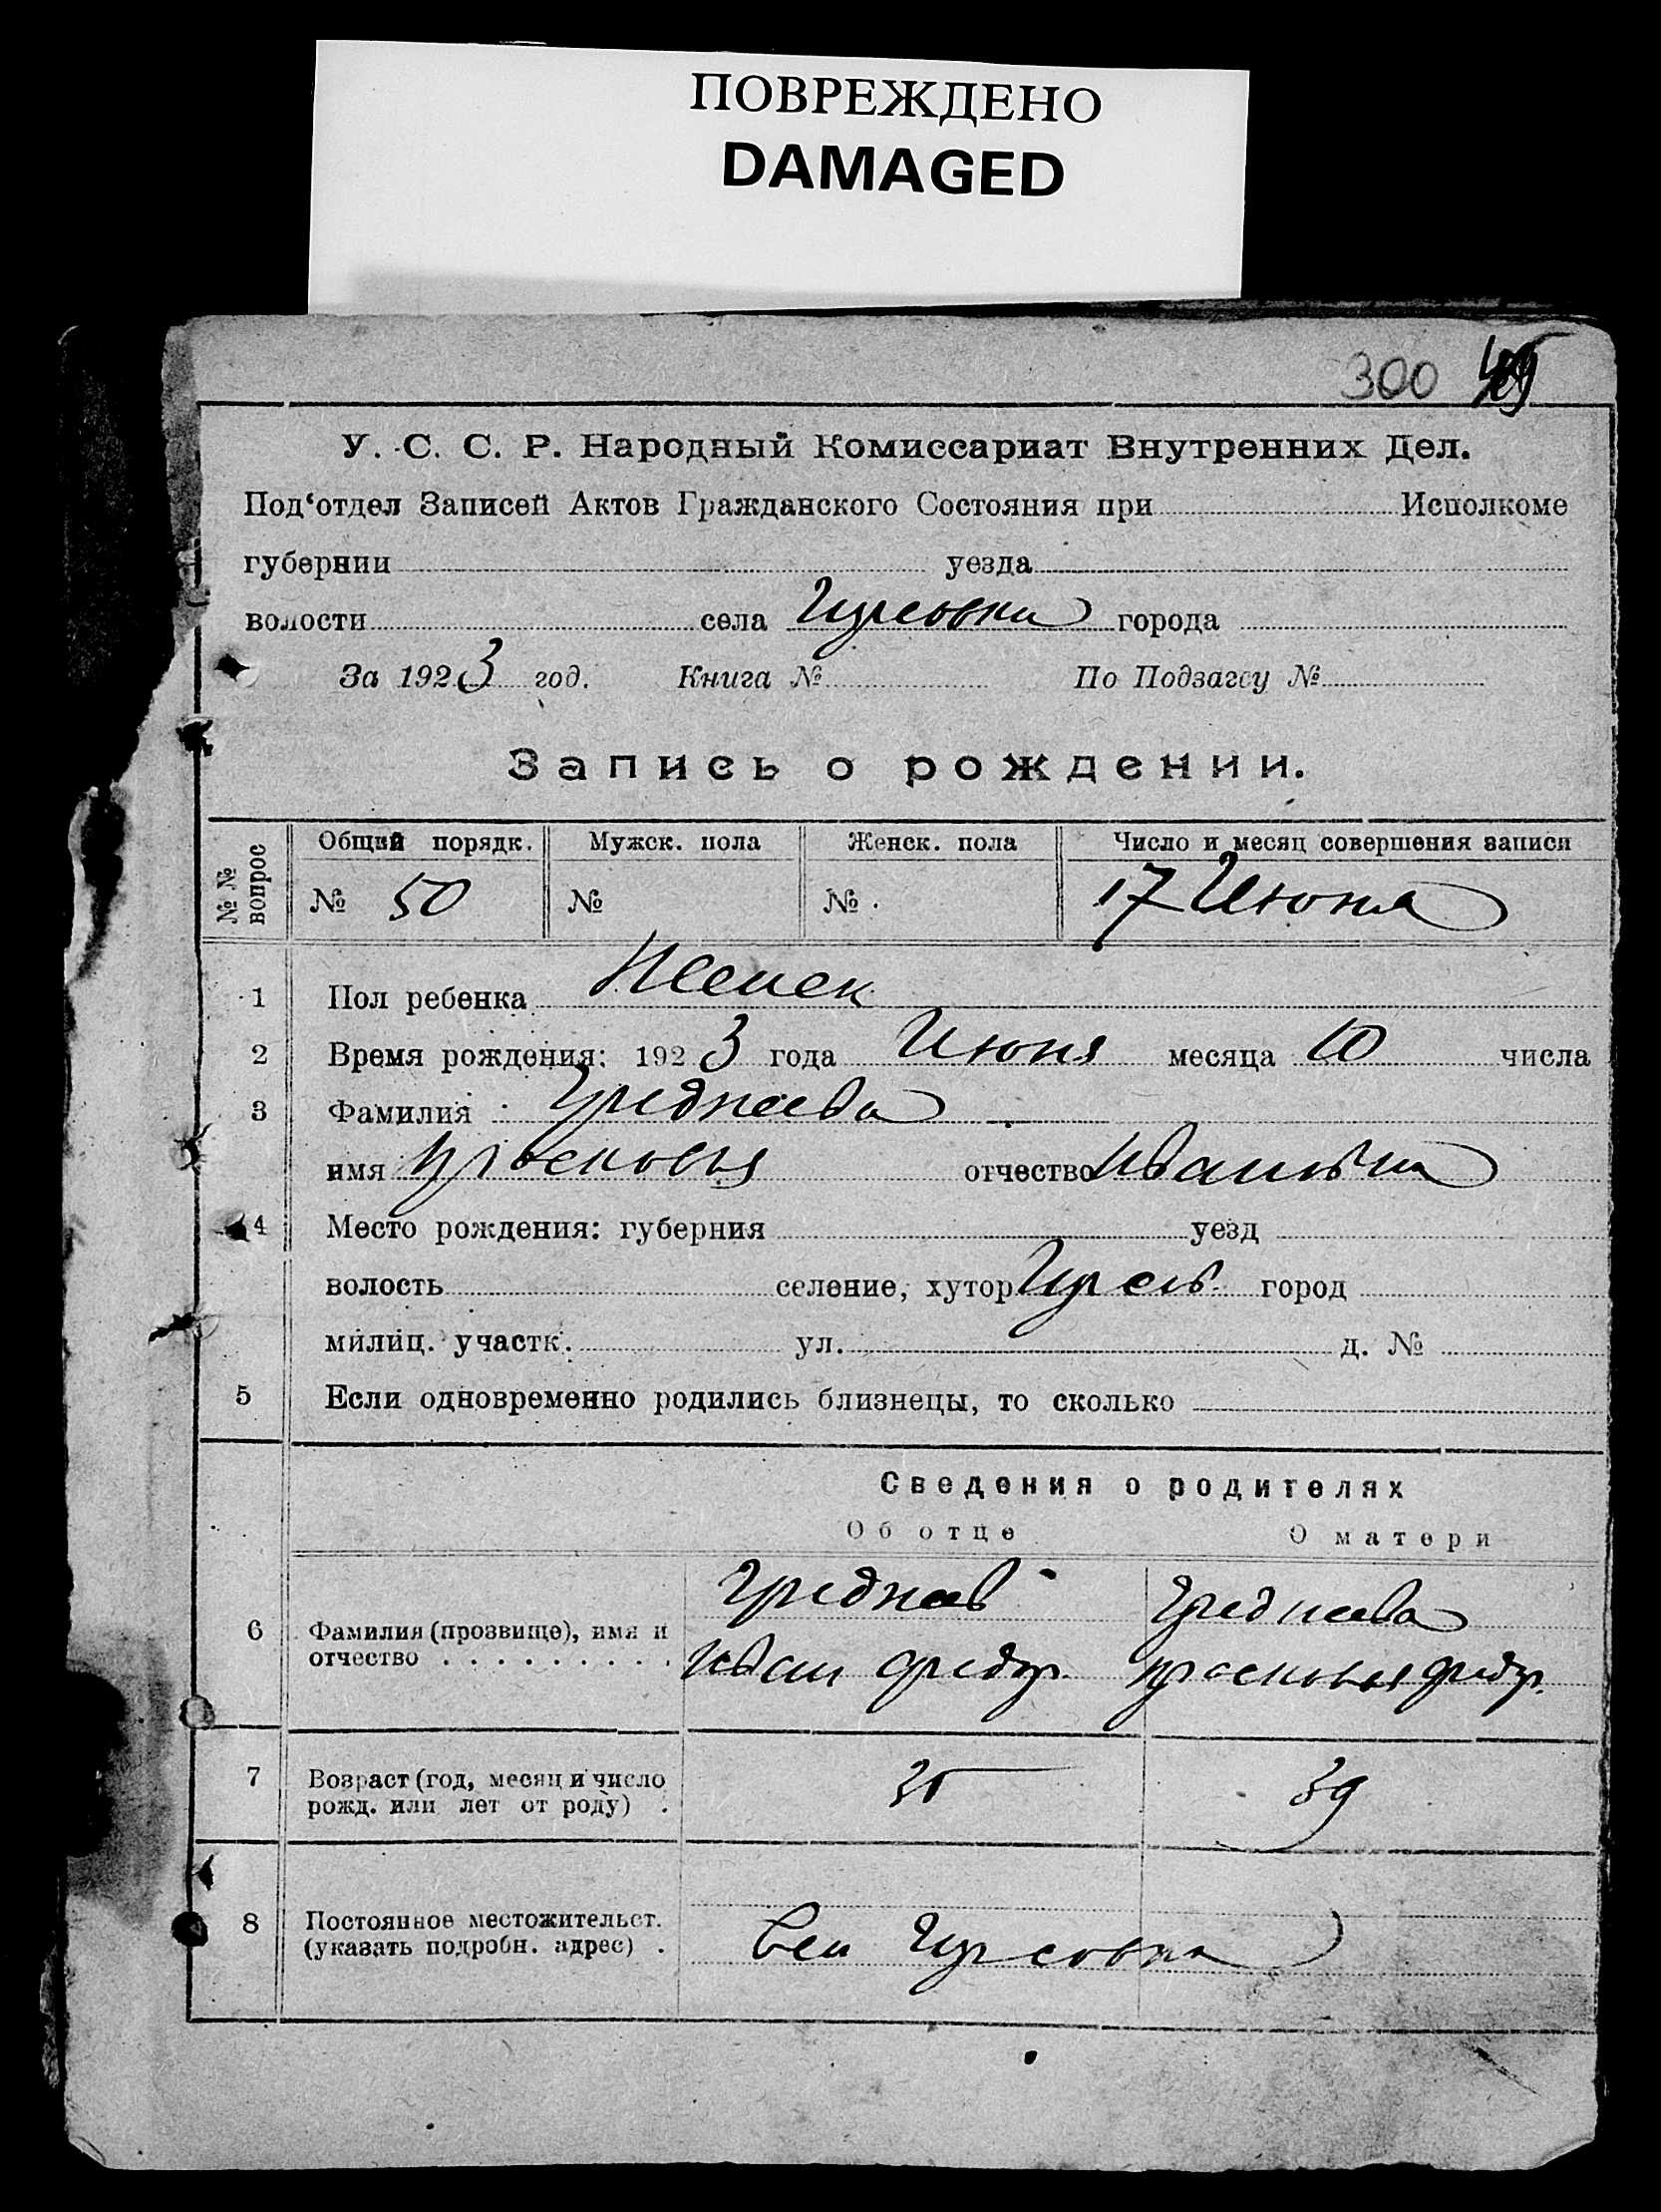 ПОВРЕЖДЕНО
DAMAGED
300
У. С. С. Р. Народный Комиссариат Внутренних Дел.
Под‘отдел Записей Актов Гражданского Состояния при Исполкоме
губернии уезда
волости села города
За 1923 год. Книга № По Подзагсу №
Запись о рождении.
№ № вопрос Общий порядк. Мужск. пола Женск. пола Число и месяц совершения записи
№ 50 № № 17 Июня
1 Пол ребенка Женск
2 Время рождения: 1923 года Июня месяца 10 числа
3 Фамилия
имя Прасковья отчество Ивановна
4 Место рождения: губерния уезд
волость селение, хутор город
милиц. участк. ул. д. №
5 Если одновременно родились близнецы, то сколько
Сведения о родителях
Об отце О матери
6 Фамилия (прозвище), имя и
отчество . . . . . . . . . Иван федор. прасковья федор.
7 Возраст (год, месяц и число
рожд. или лет от роду) . 39
8 Постоянное местожительст.
(указать подробн. адрес) .